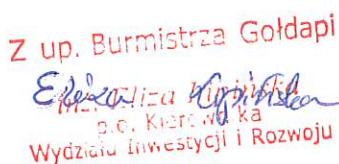 Z up. Burmistrza Gołdapi
Eliza
p.o. Kierownika
Wydziału Inwestycji i Rozwoju